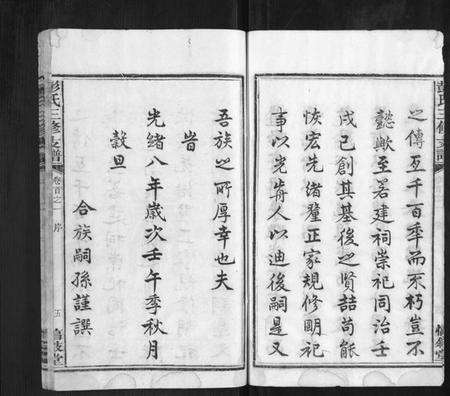 彭氏三修支譜
之傳至千百年而不朽豈不
懿歟至若建祠崇祀同治壬
戌已創其基後之賢喆苟能
恢宏先緒釐正家規修明祀
事以光前人以迪後嗣是又
吾族之所厚幸也夫
旹
光緒八年歲次壬午季秋月
穀旦
合族嗣孫謹譔
彭氏三修支譜 卷首之一 序 五